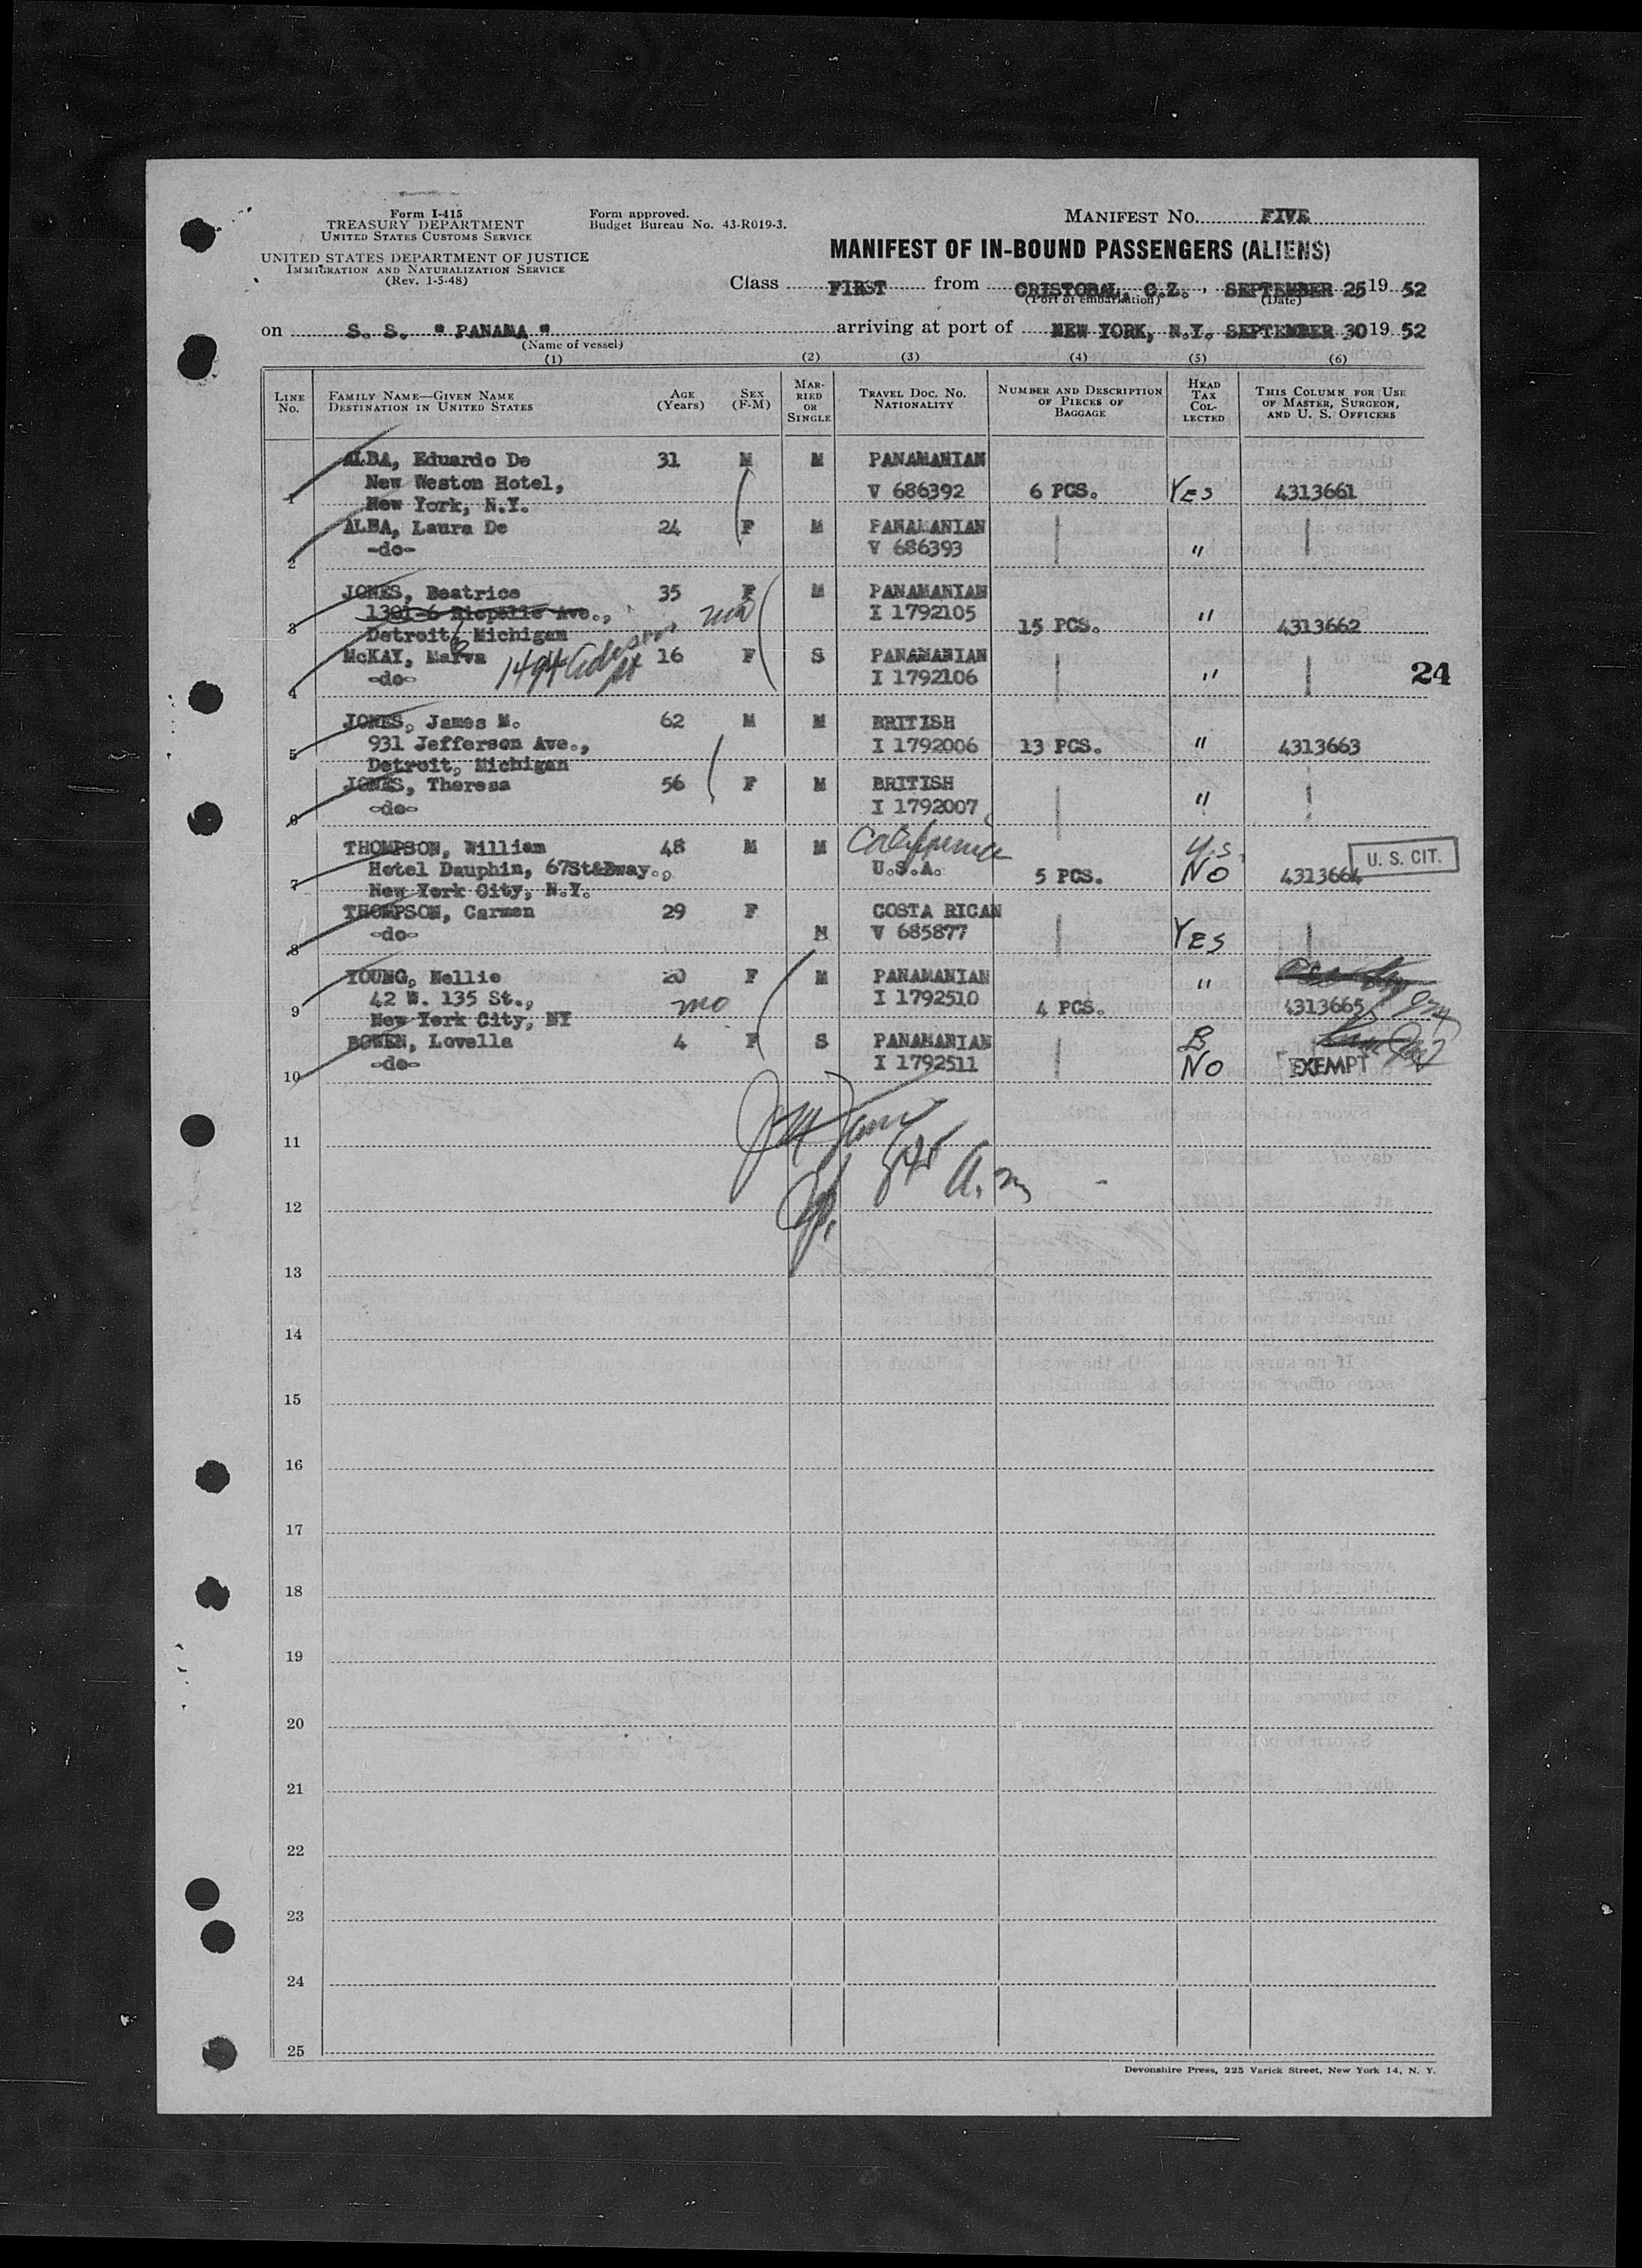 Form I-415
TREASURY DEPARTMENT
UNITED STATES CUSTOMS SERVICE
UNITED STATES DEPARTMENT OF JUSTICE
IMMIGRATION AND NATURALIZATION SERVICE
(Rev. 1-5-48)
Form approved.
Budget Bureau No. 43-R019-3.
MANIFEST NO. FIVE
MANIFEST OF IN-BOUND PASSENGERS (ALIENS)
Class FIRST from CRISTOBAL, C.Z. , SEPTEMBER 25 19 52
(Port of embarkation) (Date)
on S. S. " PANAMA " arriving at port of NEW YORK, N.Y. SEPTEMBER 30 19 52
(Name of vessel)
(1) (2) (3) (4) (5) (6)
LINE No. FAMILY NAME—GIVEN NAME DESTINATION IN UNITED STATES AGE (Years) SEX (F-M) MARRIED OR SINGLE TRAVEL DOC. NO. NATIONALITY NUMBER AND DESCRIPTION OF PIECES OF BAGGAGE HEAD TAX COLLECTED THIS COLUMN FOR USE OF MASTER, SURGEON, AND U. S. OFFICERS
ALBA, Eduardo De 31 M M PANAMANIAN
New Weston Hotel, V 686392 6 PCS. YES 4313661
1 New York, N.Y.
ALBA, Laura De 24 F M PANAMANIAN
-do- V 686393 "
2
JONES, Beatrice 35 F M PANAMANIAN
1301-6 Riopelle Ave., mo I 1792105 "
3 Detroit, Michigan 15 PCS. 4313662
McKAY, Marva 16 F S PANAMANIAN
-do- 1494 St I 1792106 " 24
4
JONES, James M. 62 M M BRITISH
5 931 Jefferson Ave., I 1792006 13 PCS. " 4313663
Detroit, Michigan
JONES, Theresa 56 F M BRITISH
6 -do- I 1792007 "
THOMPSON, William 48 M M California U.S. U. S. CIT.
Hotel Dauphin, 67St&Bway., U.S.A. 5 PCS. NO 4313664
7 New York City, N.Y.
THOMPSON, Carmen 29 F COSTA RICAN
8 -do- M V 685877 YES
YOUNG, Nellie 20 F M PANAMANIAN "
9 42 W. 135 St., mo I 1792510 4 PCS. 4313665
New York City, NY
BOWEN, Lovella 4 F S PANAMANIAN B
10 -do- I 1792511 NO EXEMPT
11
845 A.m
12
13
14
15
16
17
18
19
20
21
22
23
24
25
Devonshire Press, 225 Varick Street, New York 14, N. Y.